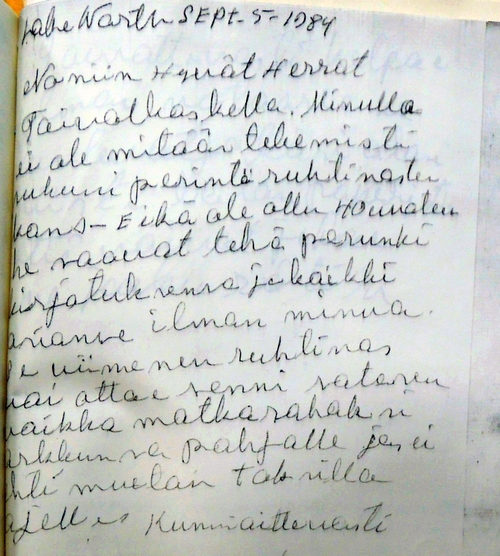 Lake Worth SEPT-5-1984
No niin Hyvät Herrat
Taivalkoskella. Minulla
ei ole mitään tekemistä
sukuni perintö ruhtinasten
kans- Eikä ole ollu
he saavat tehä perunki
kirjotuksensa ja kaikki
ilman minua.
se viimenen ruhtinas
vai ottaa senni satasen
vaikka matkarahaksi
arkkunsa pohjalle jos ei
muttan taksilla
Kunnioittavasti